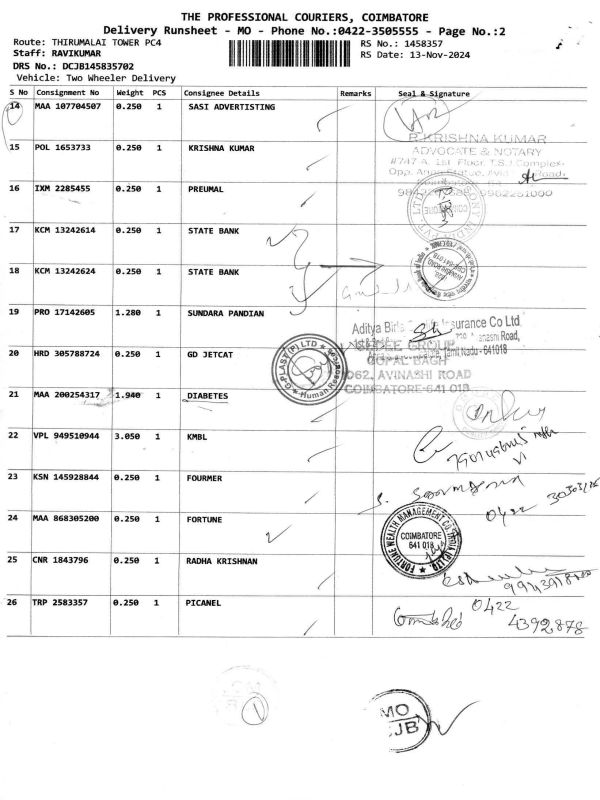 THE PROFESSIONAL COURIERS, COIMBATORE
Delivery Runsheet - MO - Phone No.:0422-3505555 - Page No.:2
Route: THIRUMALAI TOWER PC4
RS No.: 1458357
Staff: RAVIKUMAR
RS Date: 13-Nov-2024
DRS No.: DCJB145835702
Vehicle: Two Wheeler Delivery
S No Consignment No Weight PCS Consignee Details Remarks Seal & Signature
14 MAA 107704507 0.250 1 SASI ADVERTISTING
R KRISHNA KUMAR
ADVOCATE & NOTARY
15 POL 1653733 0.250 1 KRISHNA KUMAR
#747 A, 1st Floor, T.S.J. Complex,
Road,
16 IXM 2285455 0.250 1 PREUMAL
17 KCM 13242614 0.250 1 STATE BANK
18 KCM 13242624 0.250 1 STATE BANK
19 PRO 17142605 1.280 1 SUNDARA PANDIAN
Aditya Birla Insurance Co Ltd
GROUP
Tamil Nadu - 641018
20 HRD 305788724 0.250 1 GD JETCAT
GOPAL BAGH
AVINASHI ROAD
COIMBATORE-641 018
G-PLAST (P) LTD
Human Resource
21 MAA 200254317 1.940 1 DIABETES
22 VPL 949510944 3.050 1 KMBL
23 KSN 145928844 0.250 1 FOURMER
0422
24 MAA 868305200 0.250 1 FORTUNE
FORTUNE WEALTH MANAGEMENT CO. INDIA (P) LTD.
COIMBATORE
641 018
25 CNR 1843796 0.250 1 RADHA KRISHNAN
26 TRP 2583357 0.250 1 PICANEL
0422
4392878
1
MO
CJB